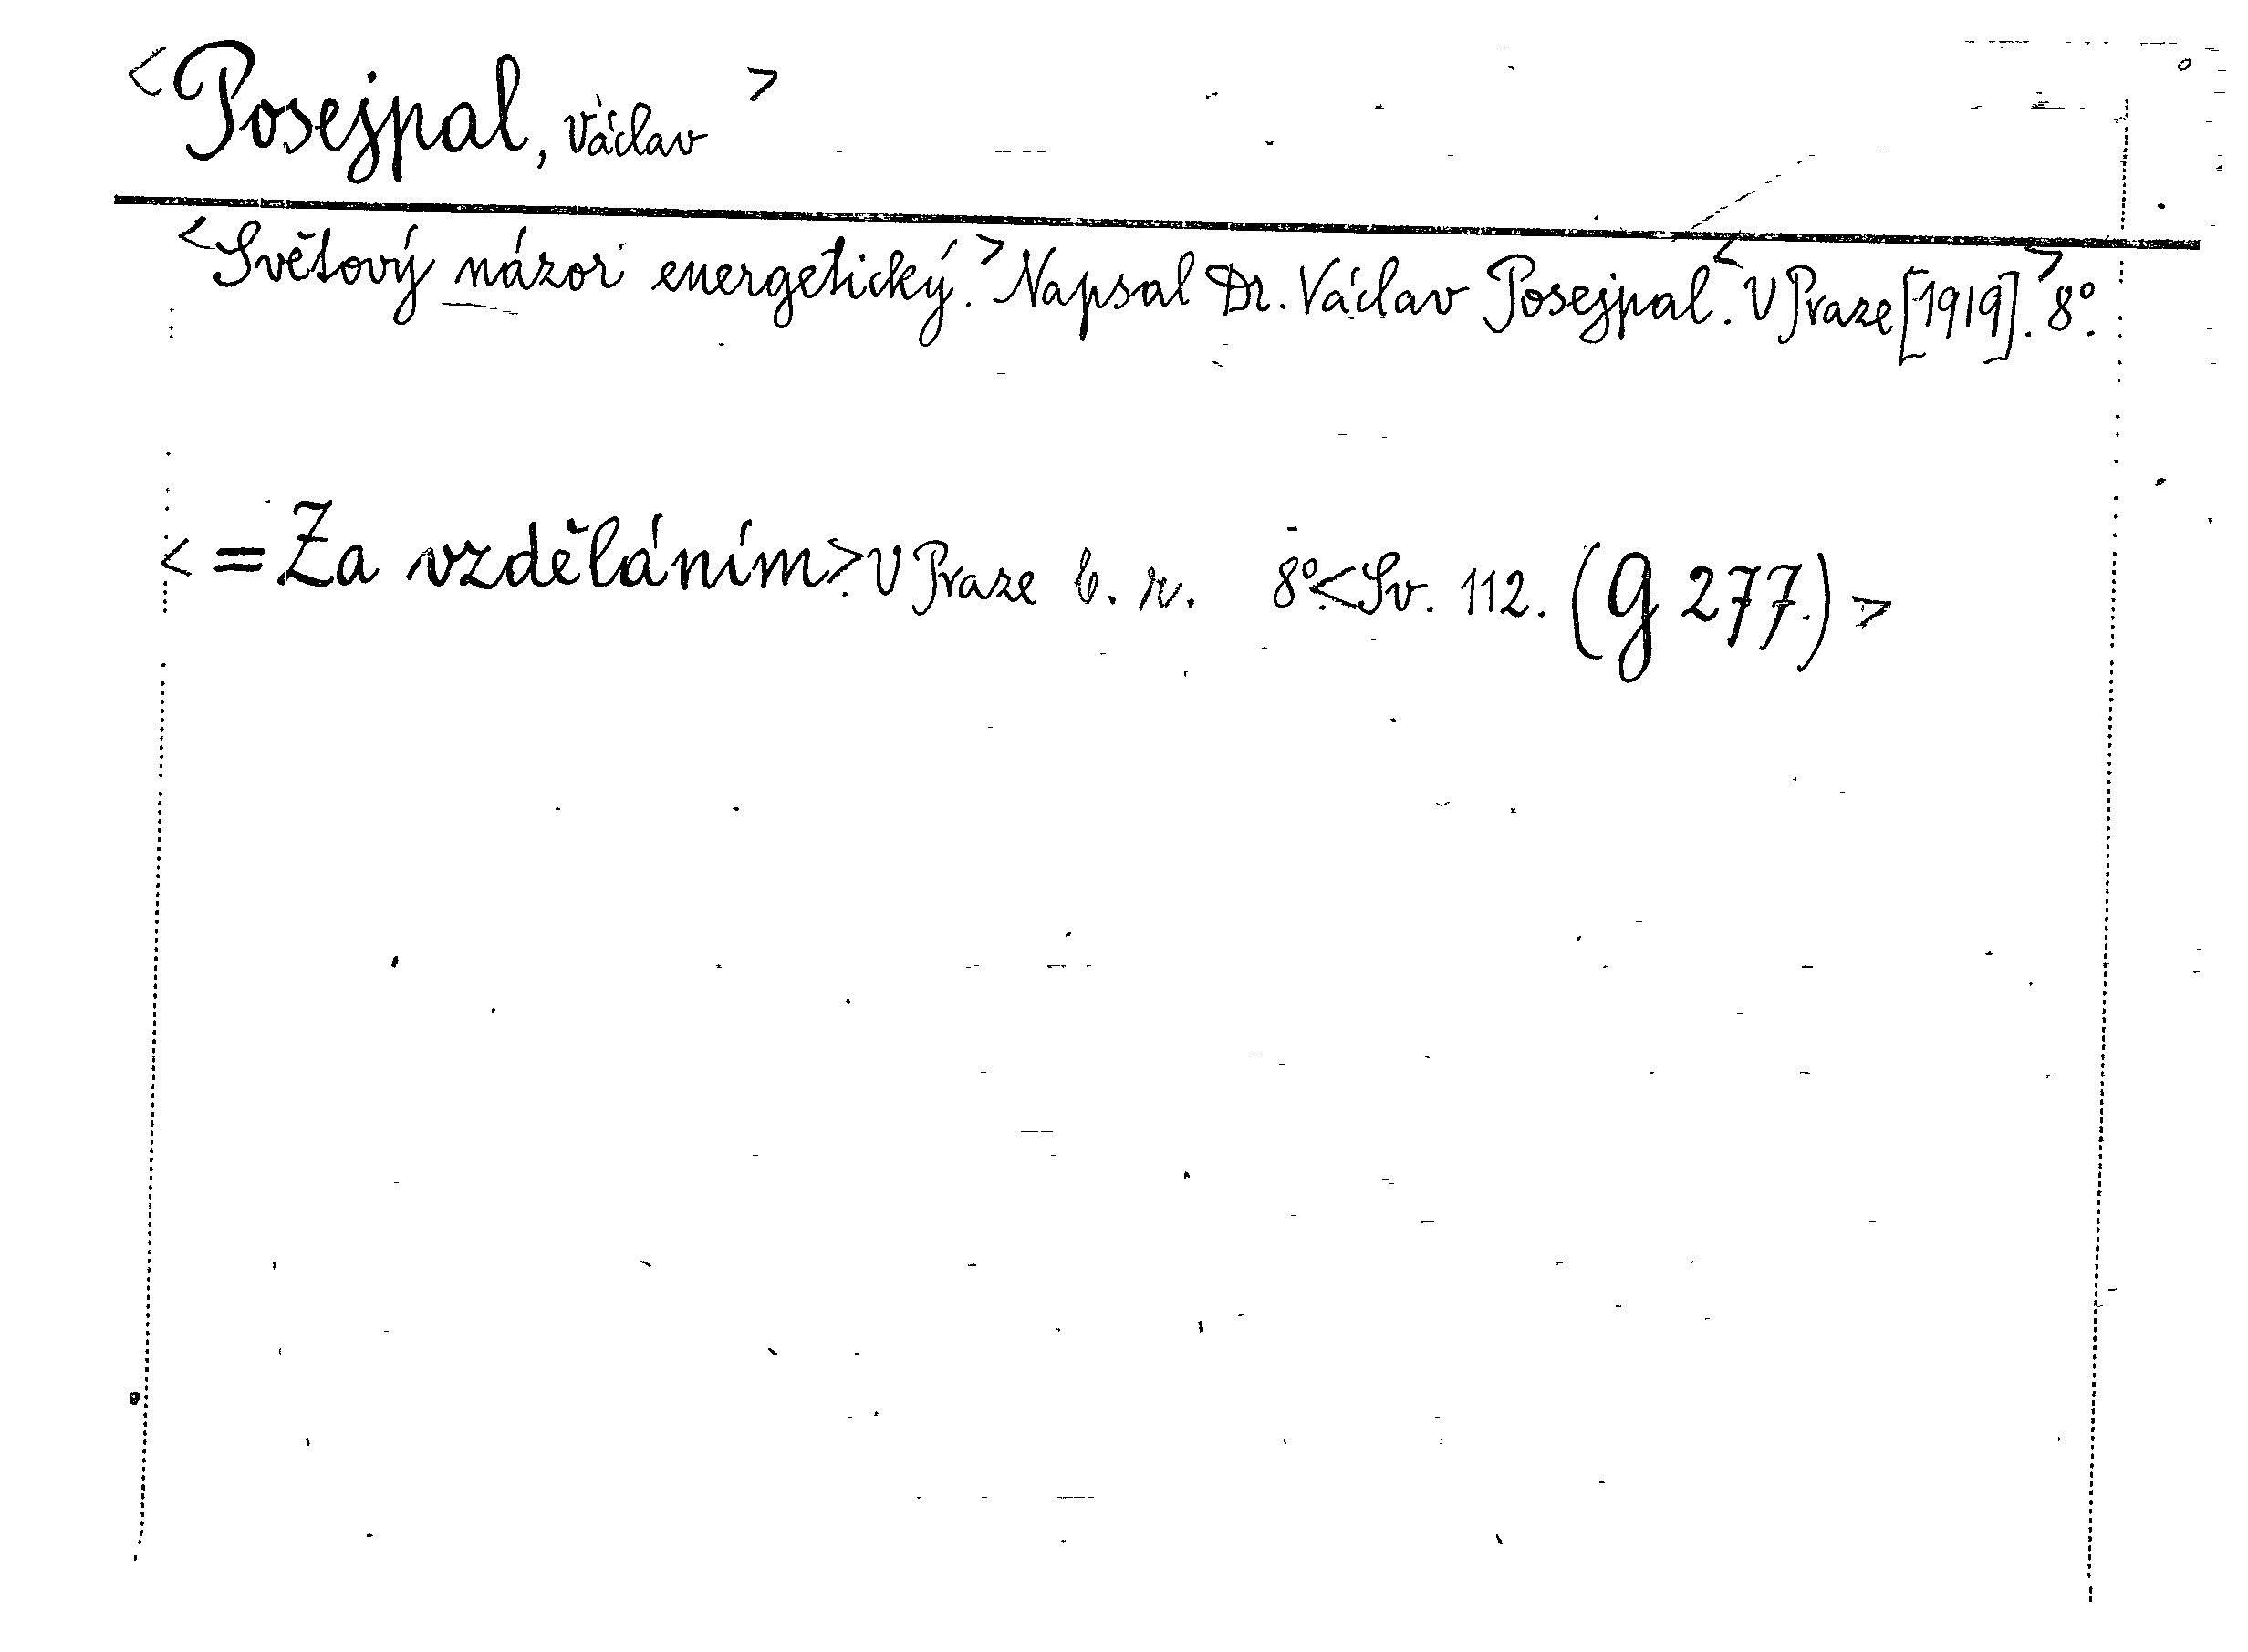 <Posejpal, Václav>
<Světový názor energetický.> Napsal Dr. Václav Posejpal. <V Praze [1919].> 8°.
<=Za vzděláním>. V Praze b. r. 8°. <Sv. 112. (G 277.)>